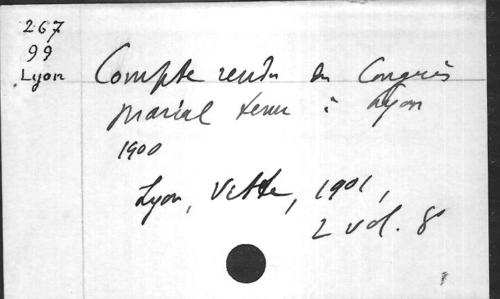 267
99
Lyon
Compte rendu du Congrès
marial tenu à Lyon
1900
Lyon, Vitte, 1901,
2 vol. 8°